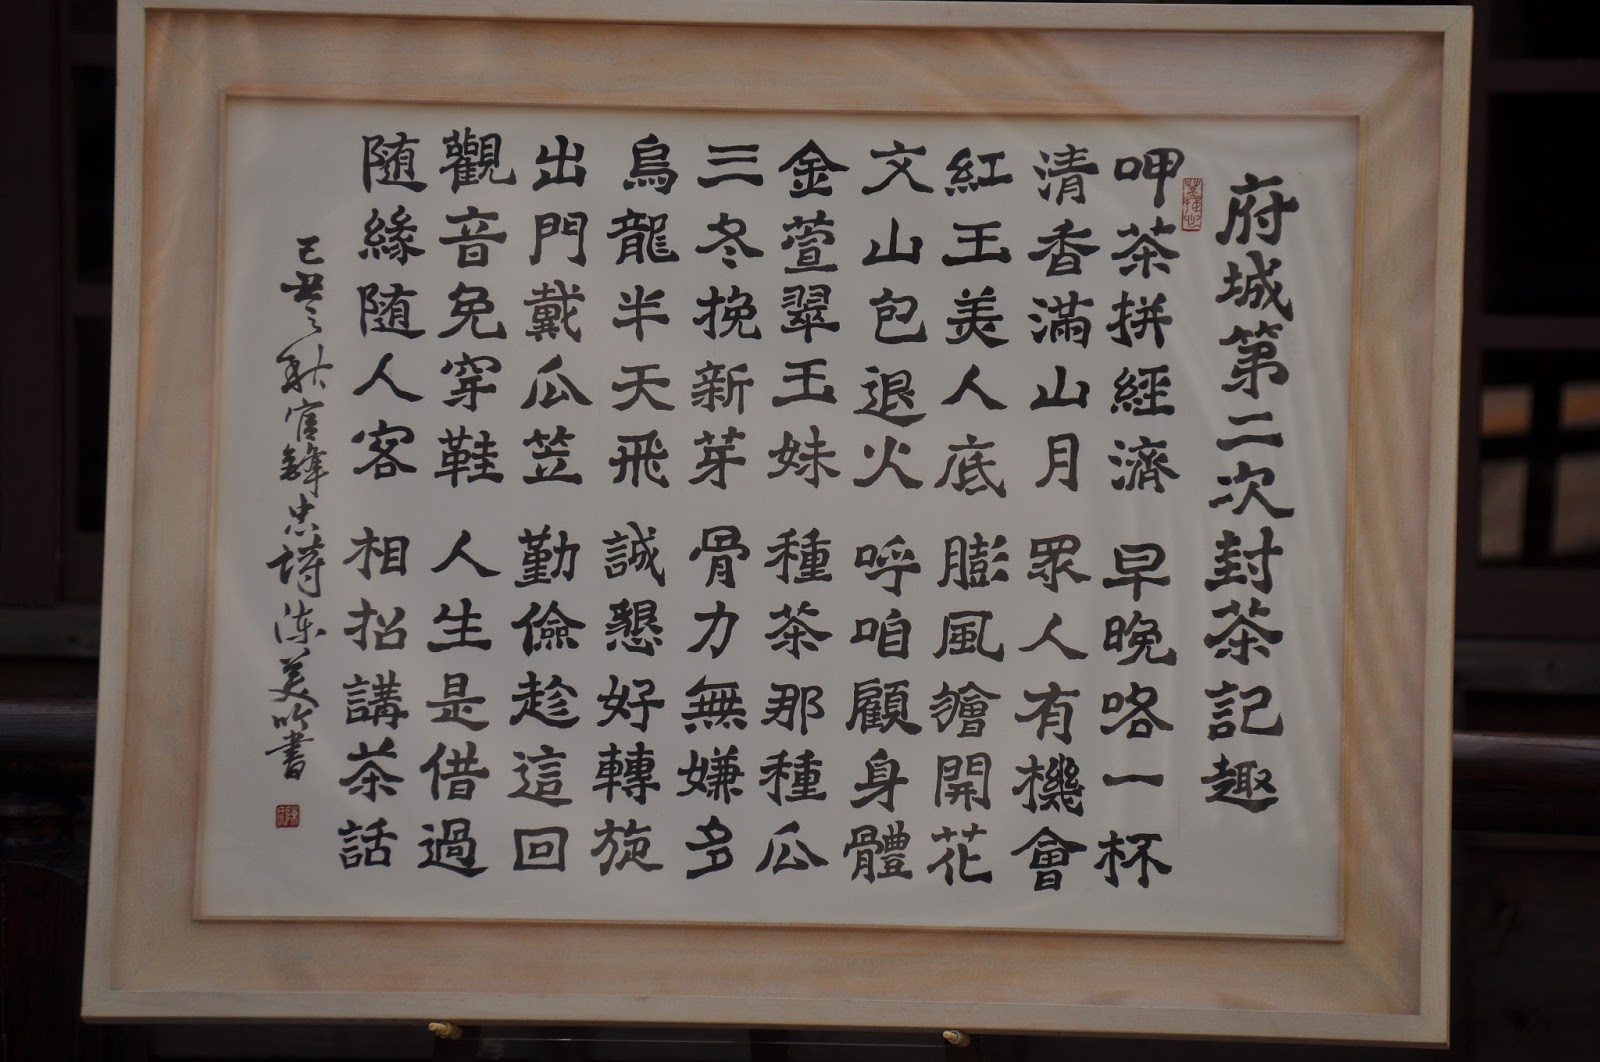 府城第二次封茶記趣
呷茶拼經濟 早晚咯一杯
清香滿山月 眾人有機會
紅玉美人底 膨風𣍐開花
文山包退火 呼咱顧身體
金萱翠玉妹 種茶那種瓜
三冬挽新芽 骨力無嫌多
烏龍半天飛 誠懇好轉旋
出門戴瓜笠 勤儉趁這回
觀音免穿鞋 人生是借過
随緣随人客 相招講茶話
己丑之秋官鋒忠詩陳美吟書